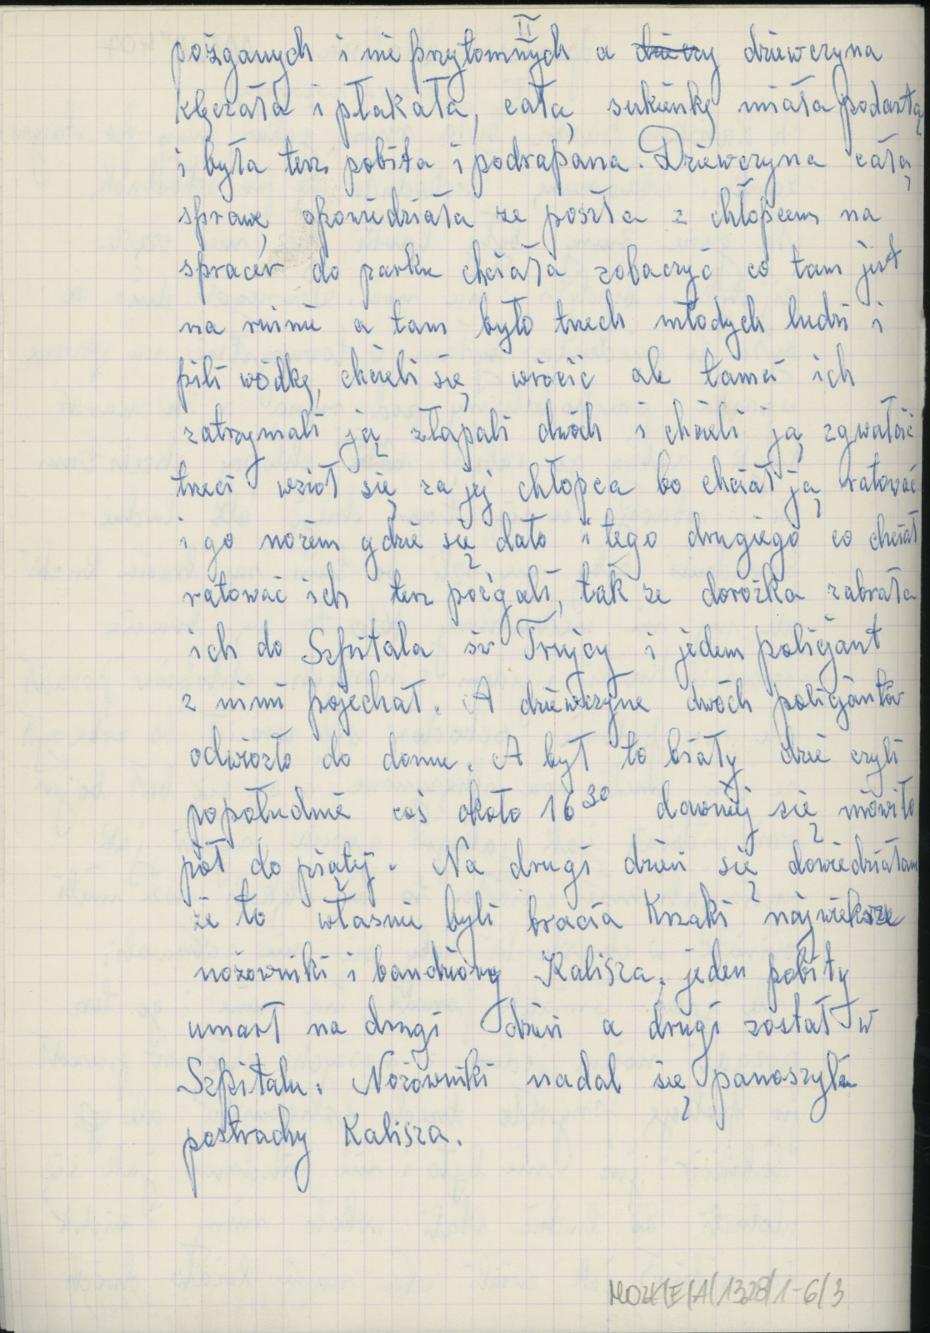 II
pożganych i nie przytomnych a dziewczyna
klęczała i płakała, całą sukienkę miała podartą
i była tesz pobita i podrapana. Dziewczyna całą
sprawę opowiedziała ze poszła z chłopcem na
spracer do parku chciała zobaczyć co tam jest
na ruinie a tam było trzech młodych ludzi i
pili wódkę, chcieli się wrócić ale tamci ich
zatrzymali ją złapali dwóch i chcieli ją zgwałcić
trzeci wzioł się za jej chłopca bo chciał ją ratować
i go nożem gdzie się dało i tego drugiego co chciał
ratować ich tesz pożgali, tak ze dorożka zabrała
ich do Szpitala św Trujcy i jeden policjant
z nimi pojechał. A dziewczyne dwóch policjantów
odwiozło do domu. A był to biały dzień czyli
popołudnie coś około 16³⁰ dawniej się mówiło
pół do piątej. Na drugi dzień się dowiedziałam
że to własnie byli bracia Krzaki największe
nożowniki i bandziory Kalisza. jeden pobity
umarł na drugi dzień a drugi został w
Szpitalu. Nożowniki nadal się panoszyli
postrachy Kalisza.
MOZK/E/A/1328/1-6/3